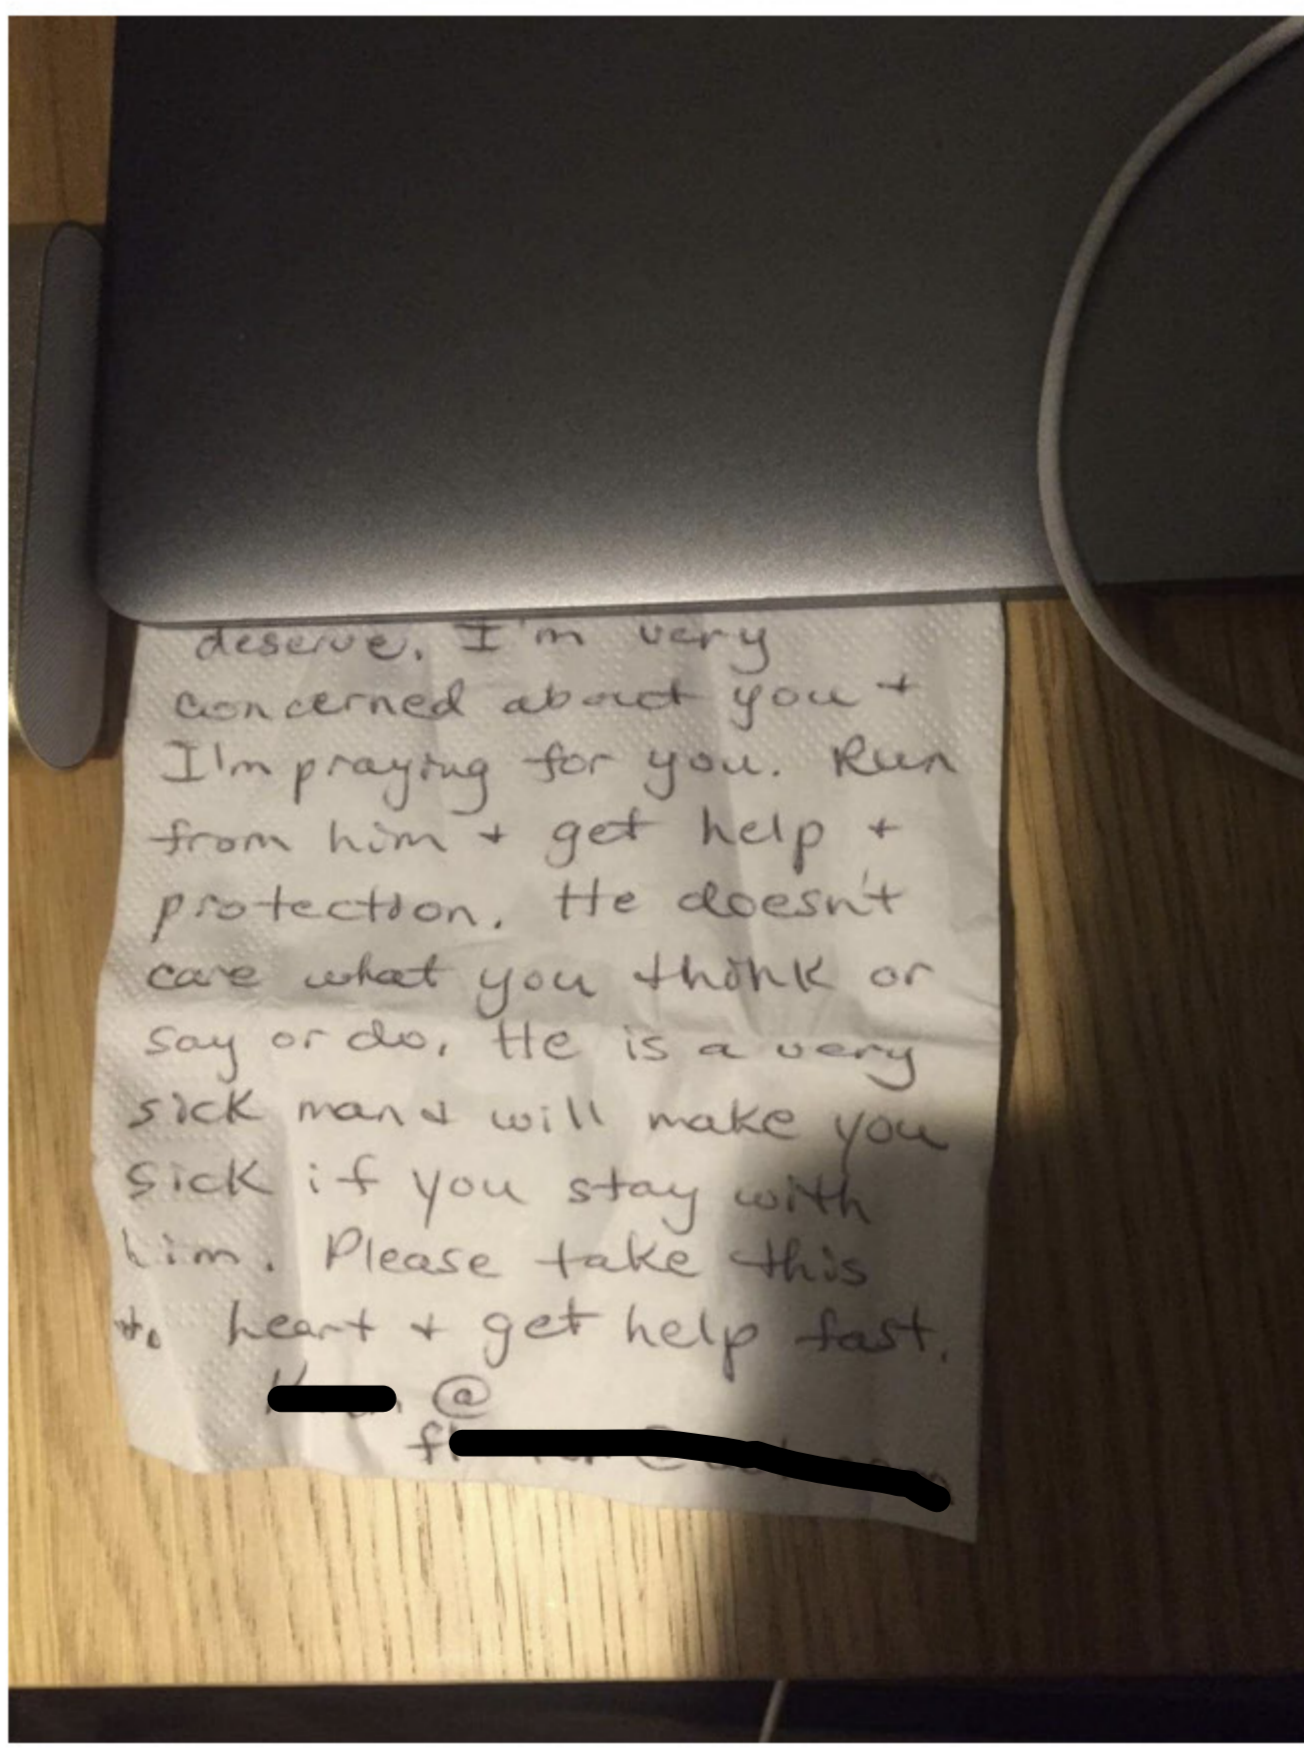 deserve. I'm very
concerned about you +
I'm praying for you. Run
from him + get help +
protection. He doesn't
care what you think or
say or do. He is a very
sick man + will make you
sick if you stay with
him. Please take this
to heart + get help fast.
@